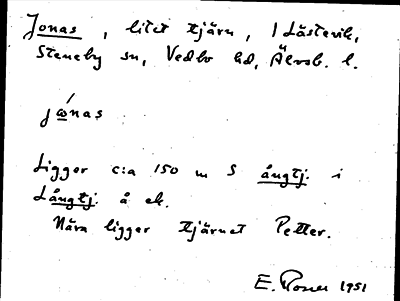 Jonas, litet tjärn, 1 Låstevik,
Steneby sn, Vedbo hd, Älvsb. l.
jώnas
Ligger c:a 150 m S ångtj. i
Långtj. å ek.
Nära ligger tjärnet Petter.
E. Rosen 1951